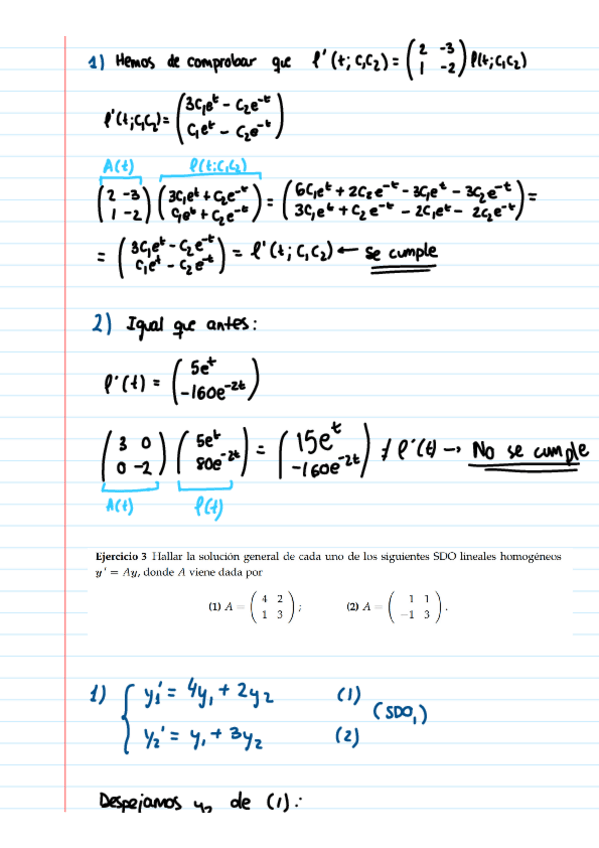 1) Hemos de comprobar que φ'(t; C₁C₂) = (2 -3 / 1 -2) φ(t; C₁C₂)
φ'(t; C₁C₂) = (3C₁eᵗ - C₂e⁻ᵗ / C₁eᵗ - C₂e⁻ᵗ)
A(t) φ(t; C₁C₂)
(2 -3 / 1 -2) (3C₁eᵗ + C₂e⁻ᵗ / C₁eᵗ + C₂e⁻ᵗ) = (6C₁eᵗ + 2C₂e⁻ᵗ - 3C₁eᵗ - 3C₂e⁻ᵗ / 3C₁eᵗ + C₂e⁻ᵗ - 2C₁eᵗ - 2C₂e⁻ᵗ) =
= (3C₁eᵗ - C₂e⁻ᵗ / C₁eᵗ - C₂e⁻ᵗ) = φ'(t; C₁C₂) ← Se cumple
2) Igual que antes:
φ'(t) = (5eᵗ / -160e⁻²ᵗ)
(3 0 / 0 -2) (5eᵗ / 80e⁻²ᵗ) = (15eᵗ / -160e⁻²ᵗ) ≠ φ'(t) → No se cumple
A(t) φ(t)
Ejercicio 3 Hallar la solución general de cada uno de los siguientes SDO lineales homogéneos
y' = Ay, donde A viene dada por
(1) A = (4 2 / 1 3); (2) A = (1 1 / -1 3).
1) { y₁' = 4y₁ + 2y₂ (1)
(SDO₁)
y₂' = y₁ + 3y₂ (2)
Despejamos y₂ de (1):